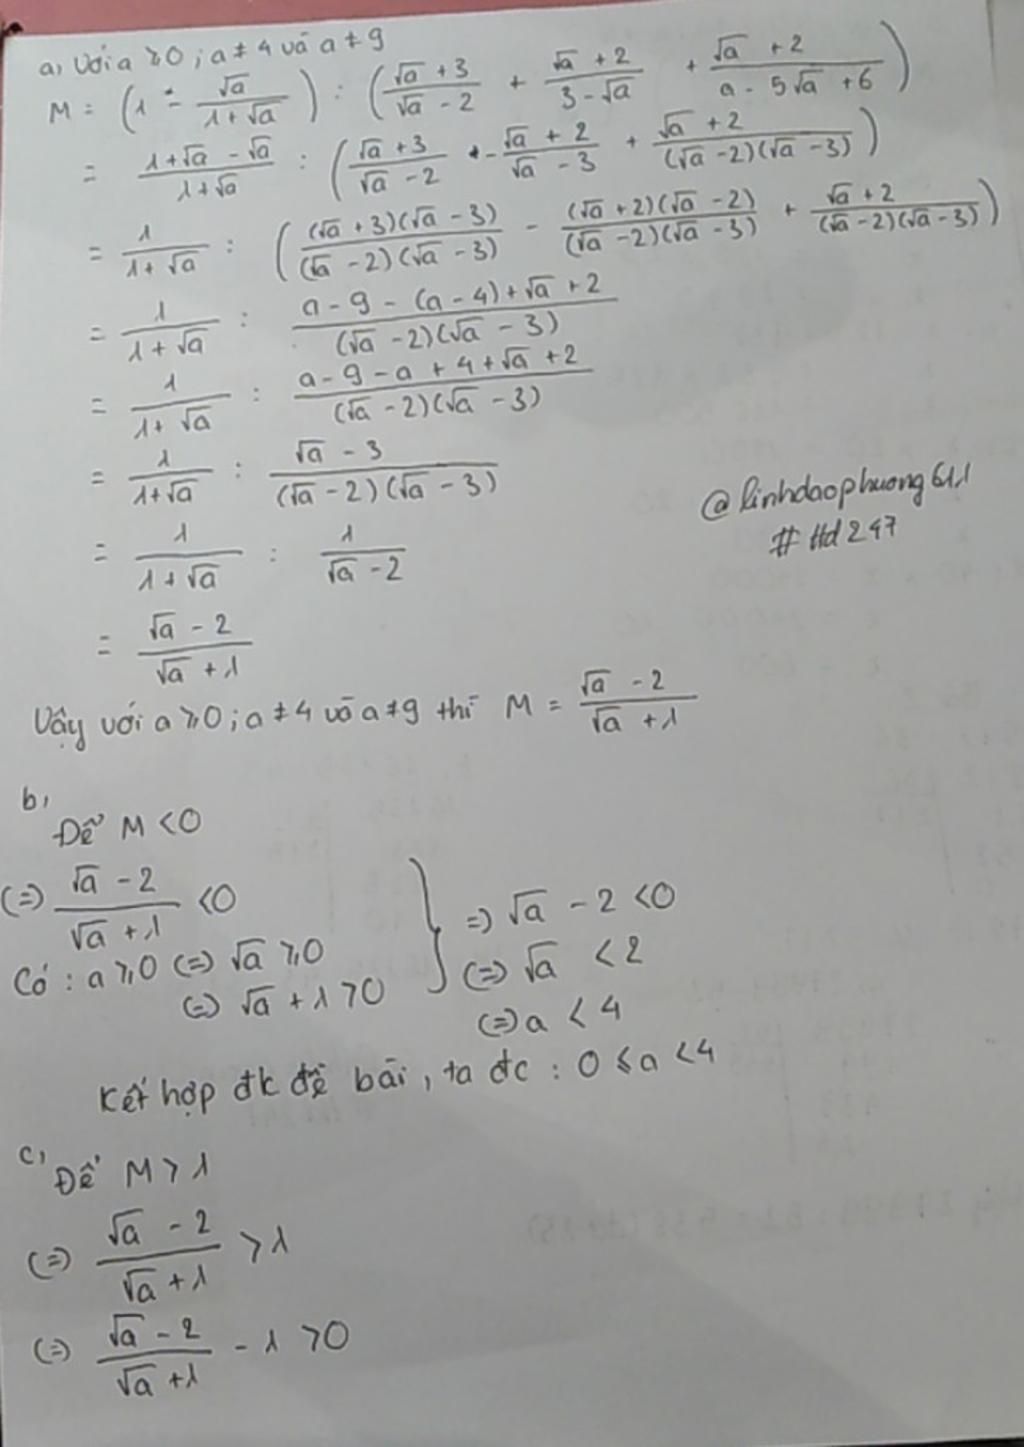 a, Với a ≥ 0 ; a ≠ 4 và a ≠ 9
M = (1 - √a / (1 + √a)) : ((√a + 3)/(√a - 2) + (√a + 2)/(3 - √a) + (√a + 2)/(a - 5√a + 6))
= (1 + √a - √a)/(1 + √a) : ((√a + 3)/(√a - 2) - (√a + 2)/(√a - 3) + (√a + 2)/((√a - 2)(√a - 3)))
= 1/(1 + √a) : ((√a + 3)(√a - 3)/((√a - 2)(√a - 3)) - (√a + 2)(√a - 2)/((√a - 2)(√a - 3)) + (√a + 2)/((√a - 2)(√a - 3)))
= 1/(1 + √a) : (a - 9 - (a - 4) + √a + 2)/((√a - 2)(√a - 3))
= 1/(1 + √a) : (a - 9 - a + 4 + √a + 2)/((√a - 2)(√a - 3))
= 1/(1 + √a) : (√a - 3)/((√a - 2)(√a - 3))
@linhdaophuong611
# Hd247
= 1/(1 + √a) : 1/(√a - 2)
= (√a - 2)/(√a + 1)
Vậy với a ≥ 0 ; a ≠ 4 và a ≠ 9 thì M = (√a - 2)/(√a + 1)
b,
Để M < 0
(=) (√a - 2)/(√a + 1) < 0
Có : a ≥ 0 (=) √a ≥ 0
(=) √a + 1 > 0
=) √a - 2 < 0
(=) √a < 2
(=) a < 4
Kết hợp đk đề bài, ta đc : 0 ≤ a < 4
c,
Để M > 1
(=) (√a - 2)/(√a + 1) > 1
(=) (√a - 2)/(√a + 1) - 1 > 0